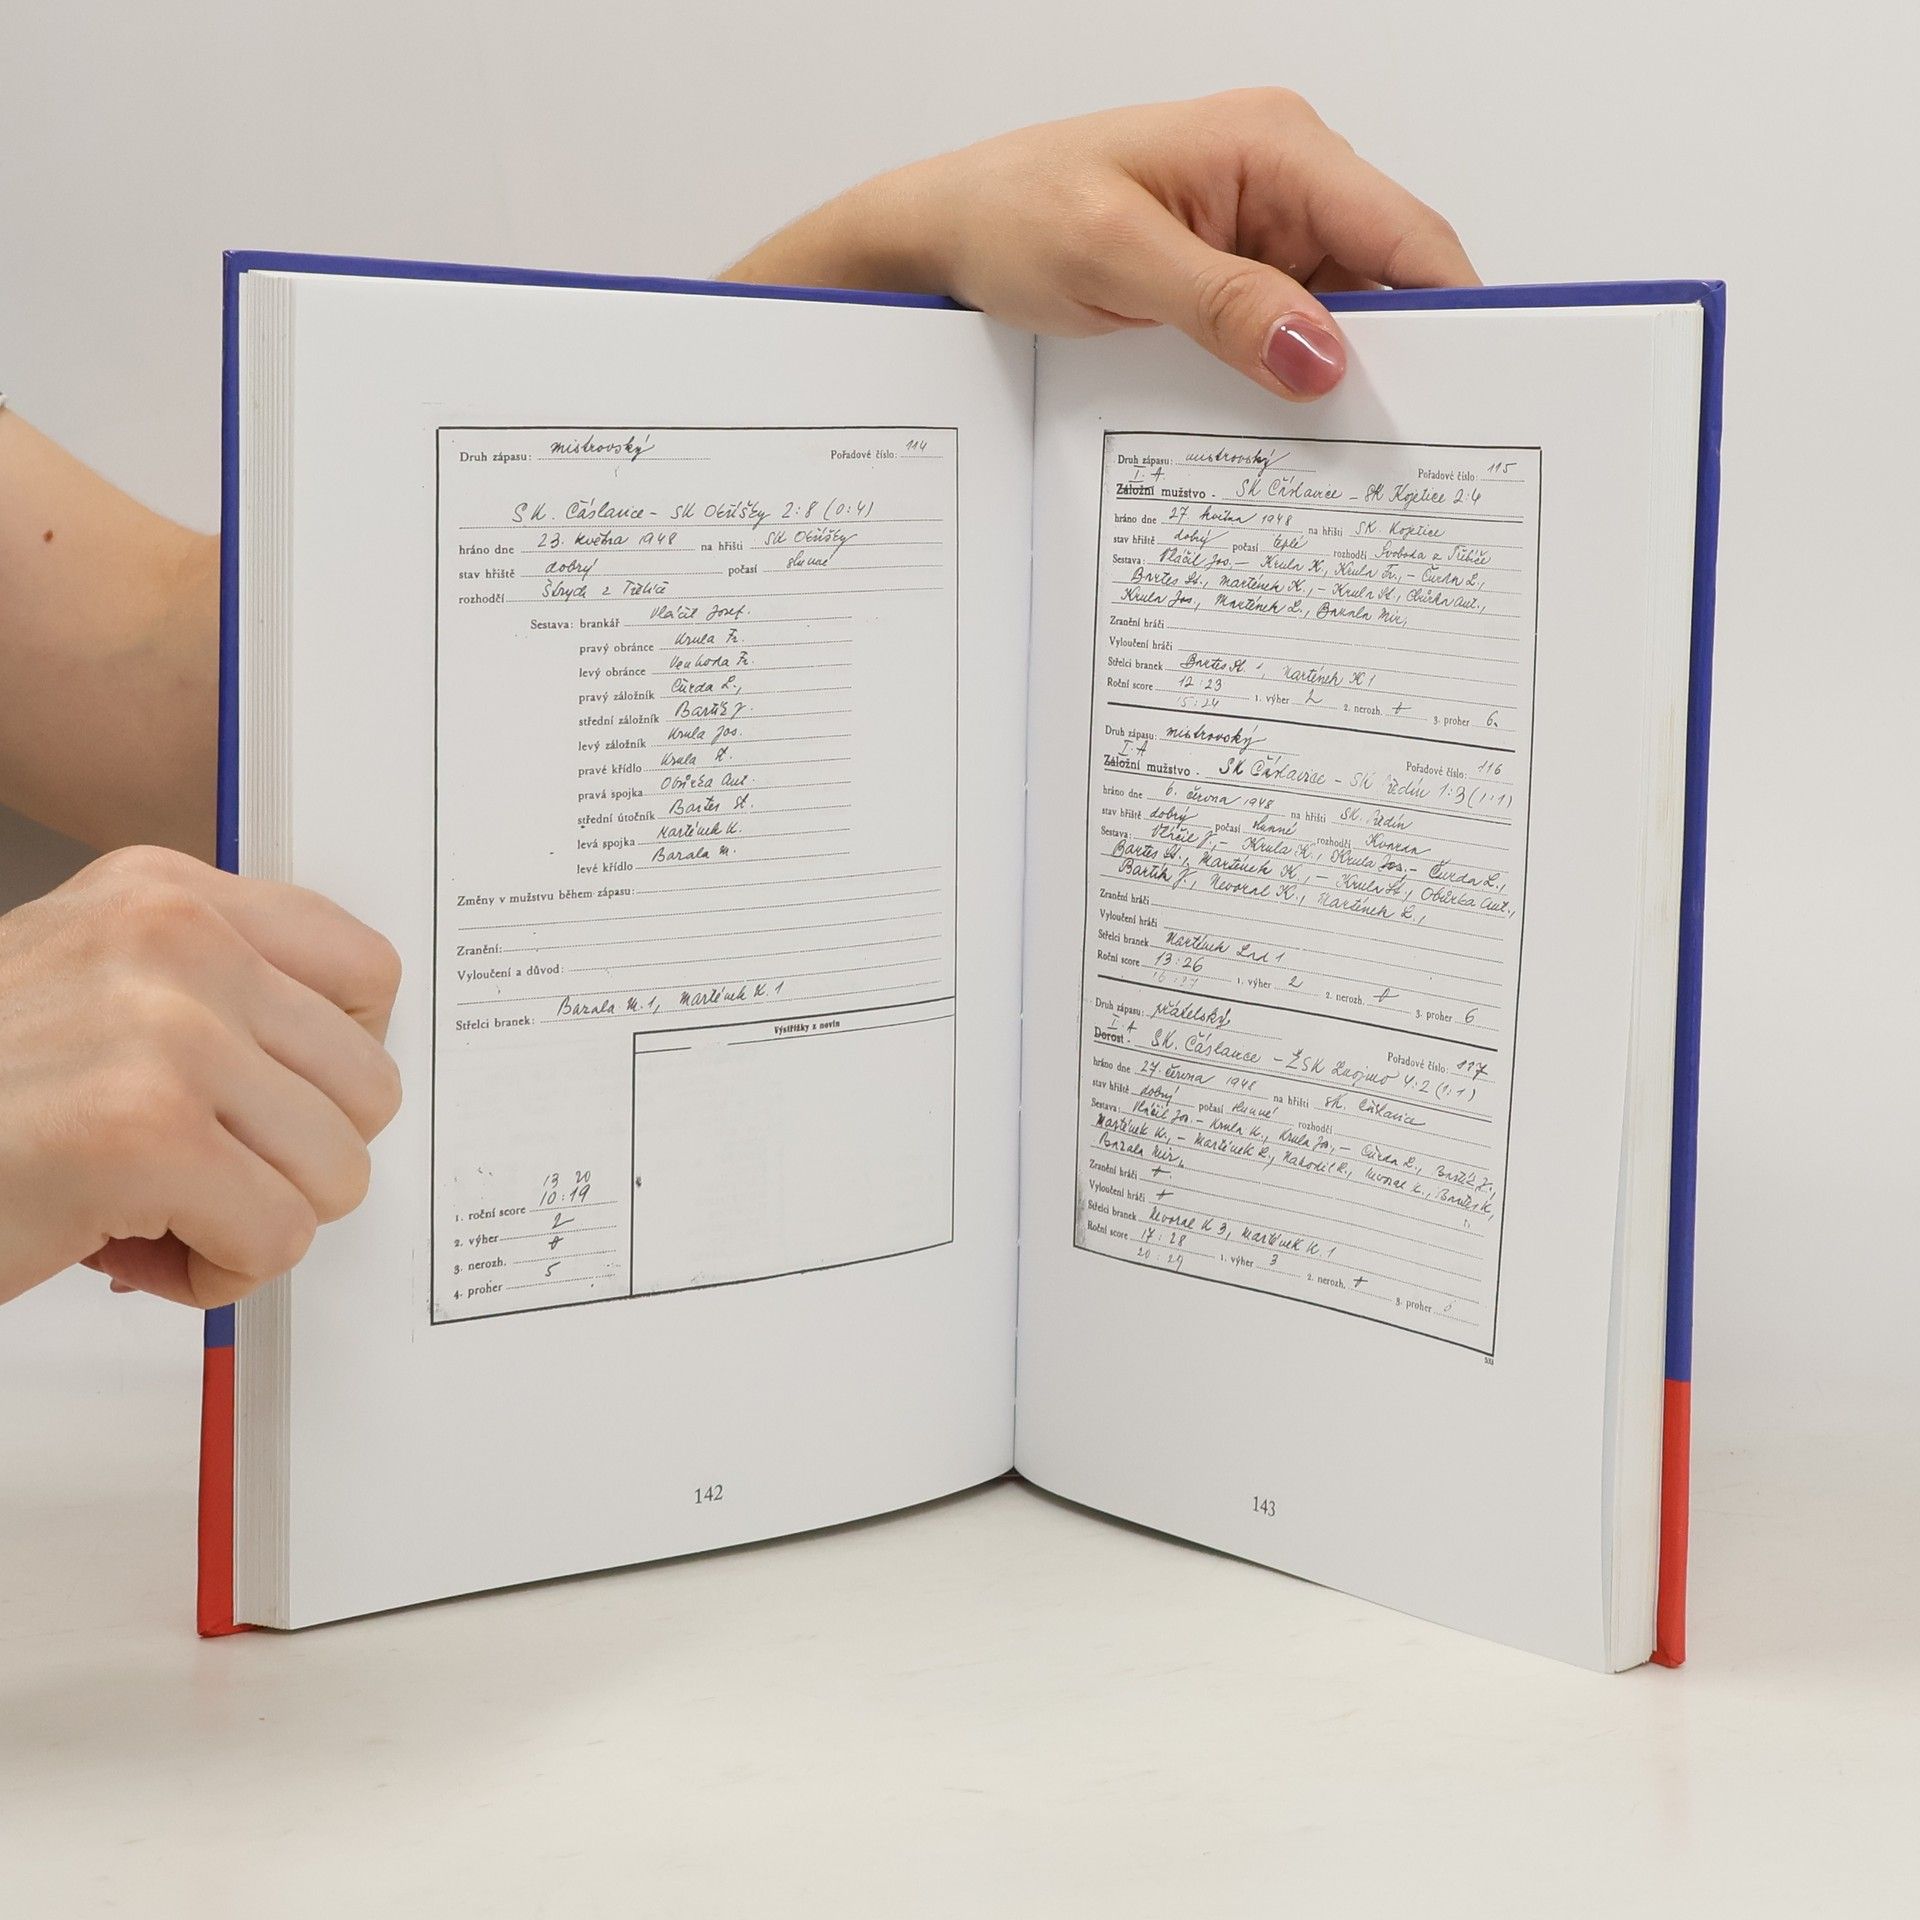 Druh zápasu: mistrovský Pořadové číslo: 114
SK. Čáslavice - SK Okříšky 2:8 (0:4)
hráno dne 23. května 1948 na hřišti SK Okříšky
stav hřiště dobrý počasí slunné
rozhodčí Štrych z Třebíče
Sestava: brankář Vláčil Josef.
pravý obránce Krula Fr.
levý obránce Venhoda Fr.
pravý záložník Čurda L.,
střední záložník Bartík J.
levý záložník Krula Jos.
pravé křídlo Krula St.
pravá spojka Obůrka Ant.
střední útočník Bartes St.
levá spojka Martének K.
levé křídlo Bazala M.
Změny v mužstvu během zápasu:
Zranění:
Vyloučení a důvod:
Střelci branek: Bazala M. 1, Martének K. 1
Výstřižky z novin
13 20
1. roční score 10:19
2. výher 2
3. nerozh.
4. proher 5
142
Druh zápasu: mistrovský Pořadové číslo: 115
I. A.
Záložní mužstvo - SK Čáslavice - SK Kojetice 2:4
hráno dne 27 května 1948 na hřišti SK. Kojetice
stav hřiště dobrý počasí teplé rozhodčí Svoboda z Třebíče
Sestava: Vláčil Jos, - Krula K, Krula Fr, - Čurda L.,
Bartes St., Martének K., - Krula St, Obůrka Ant.,
Krula Jos, Martének L., Bazala Mir,
Zranění hráči
Vyloučení hráči
Střelci branek Bartes St. 1, Martének K 1
Roční score 12:23 1. výher 2 2. nerozh. 3. proher 6.
15:24
Druh zápasu: mistrovský Pořadové číslo: 116
I. A
Záložní mužstvo - SK Čáslavice - SK Ředín 1:3 (1:1)
hráno dne 6. června 1948 na hřišti SK. Ředín
stav hřiště dobrý počasí slunné rozhodčí
Sestava: Vláčil J, - Krula K., Krula Jos, - Čurda L.,
Bartes St., Martének K., - Krula St, Obůrka Ant.,
Bartík J, Nevoral K., Martének L.,
Zranění hráči
Vyloučení hráči
Střelci branek Martének Lad 1
Roční score 13:26 1. výher 2 2. nerozh. 3. proher 6
16:27
Druh zápasu: přátelský Pořadové číslo: 117
I. A
Dorost - SK. Čáslavice - ŽSK Znojmo 4:2 (1:1)
hráno dne 27. června 1948 na hřišti SK. Čáslavice
stav hřiště dobrý počasí slunné rozhodčí
Sestava: Vláčil Jos. - Krula K., Krula Jos, - Čurda L., Bartík J.,
Martének K., - Martének L., Nahodil R., Nevoral K., Bartes K,
Bazala Mir,
Zranění hráči
Vyloučení hráči
Střelci branek Nevoral K 3, Martének K. 1
Roční score 17:28 1. výher 3 2. nerozh. 3. proher 6
20:29
533
143